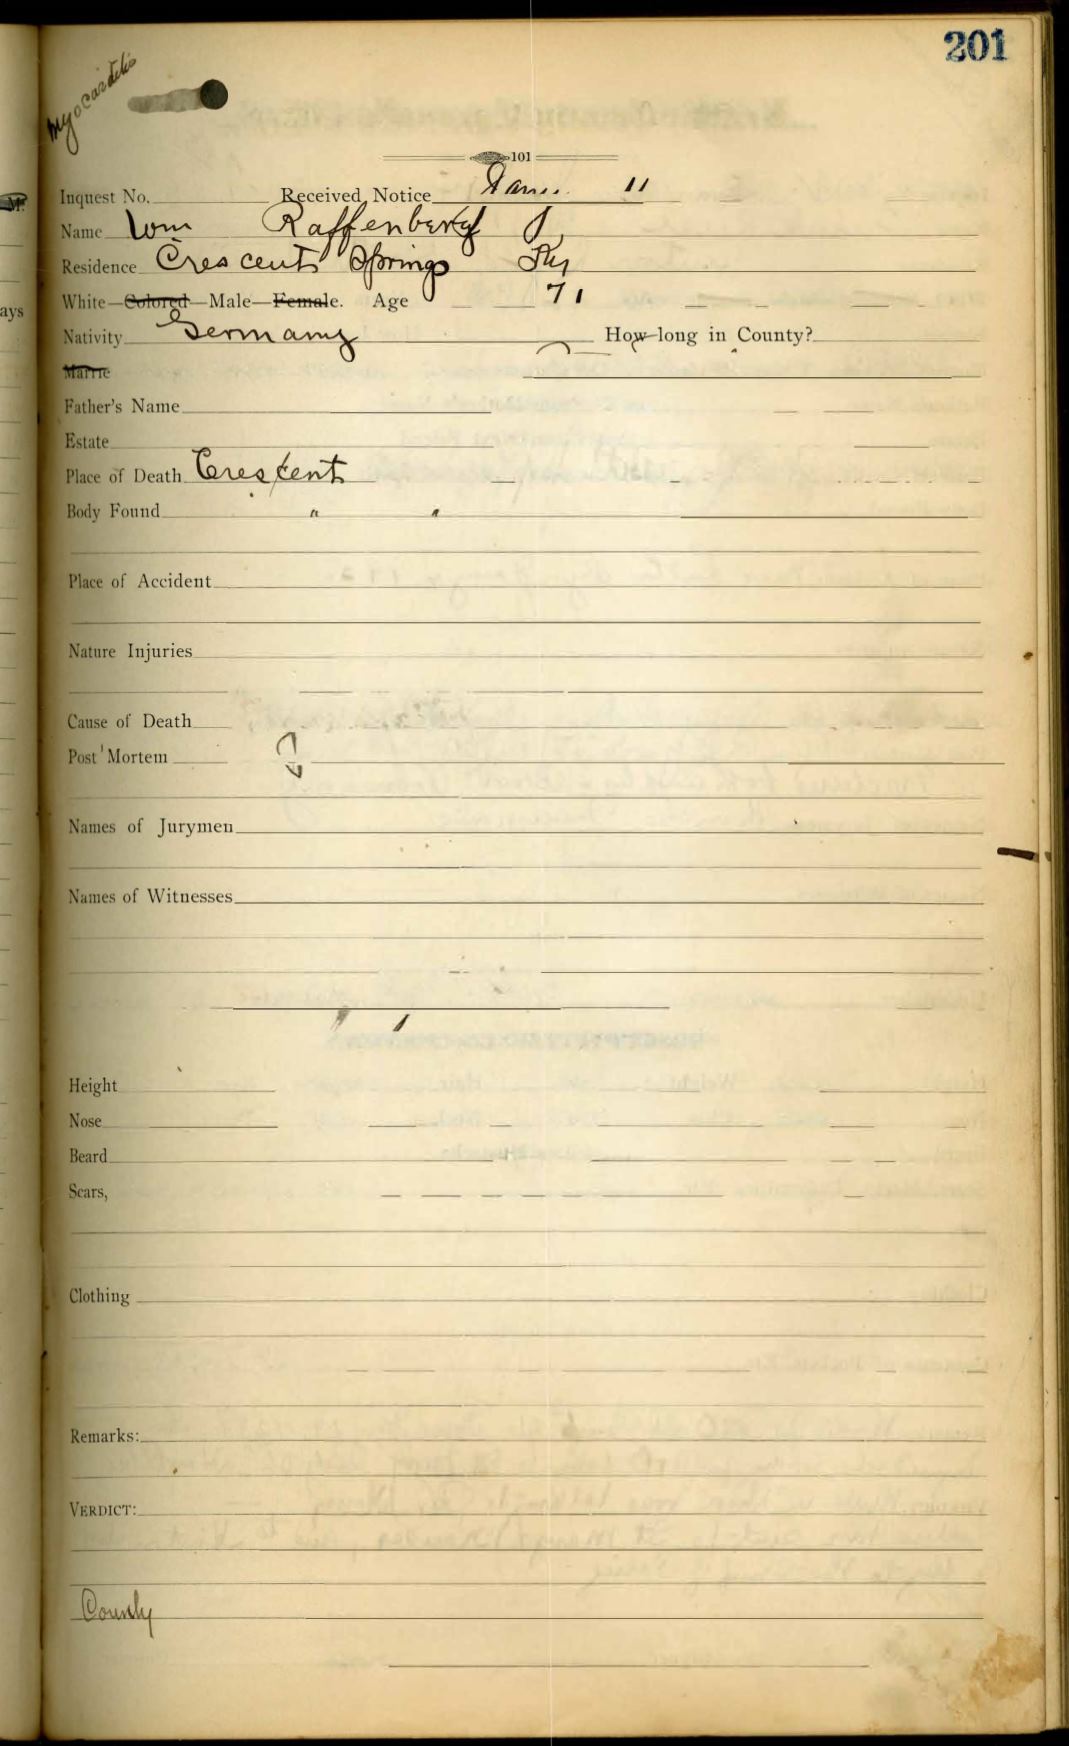 201
Myocarditis
101
Inquest No. Received Notice 11
Name Wm Raffenberg
Residence Crescent Springs Ky
White—Colored—Male—Female. Age 71
Nativity Germany How long in County?
Marrie
Father's Name
Estate
Place of Death Crescent
Body Found " "
Place of Accident
Nature Injuries
Cause of Death
Post Mortem
Names of Jurymen
Names of Witnesses
Height
Nose
Beard
Scars,
Clothing
Remarks:
VERDICT:
County